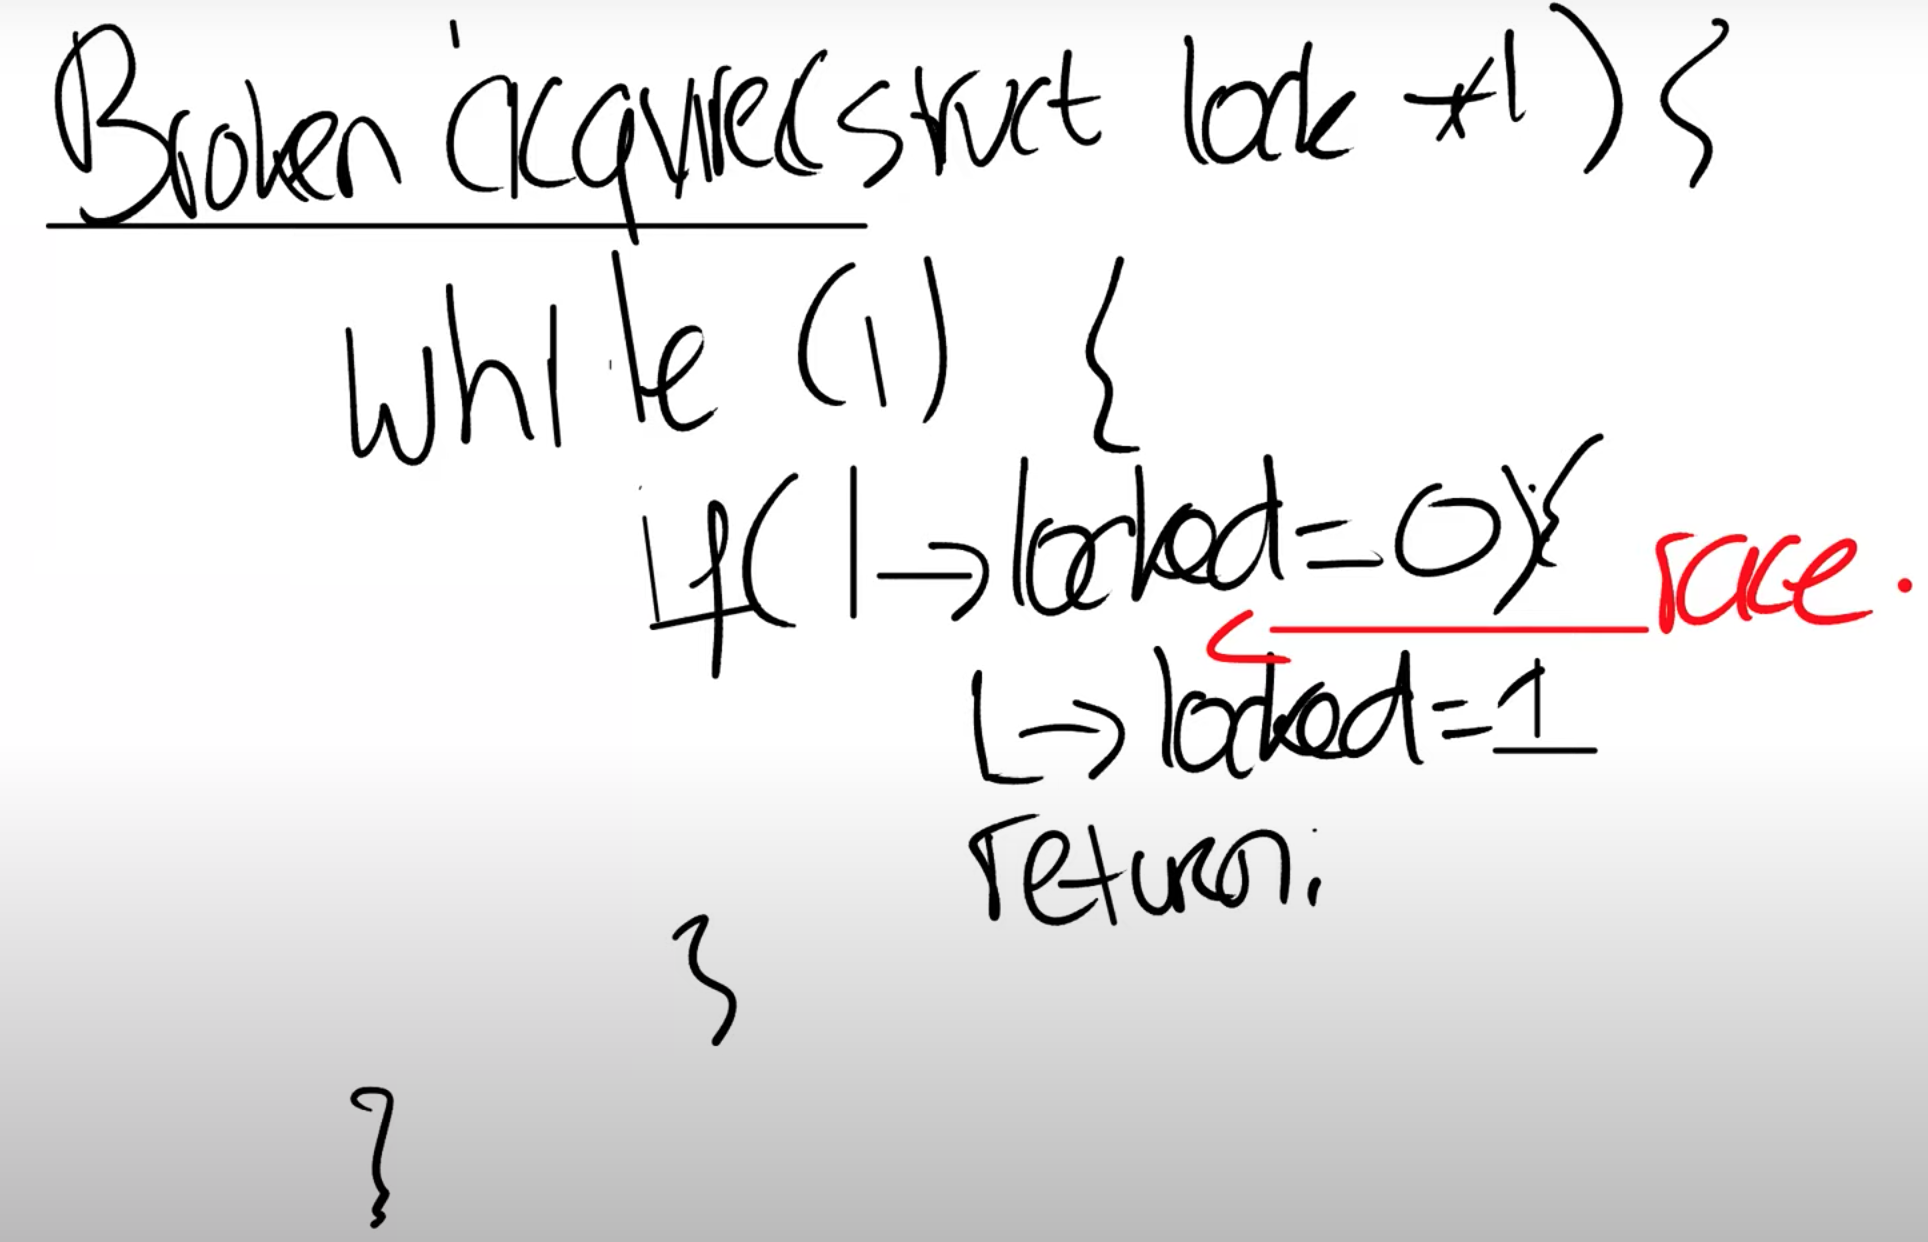 Broken acquire(struct lock *l) {
while (1) {
if(l->locked=0){
race.
L->locked=1
return;
}
}